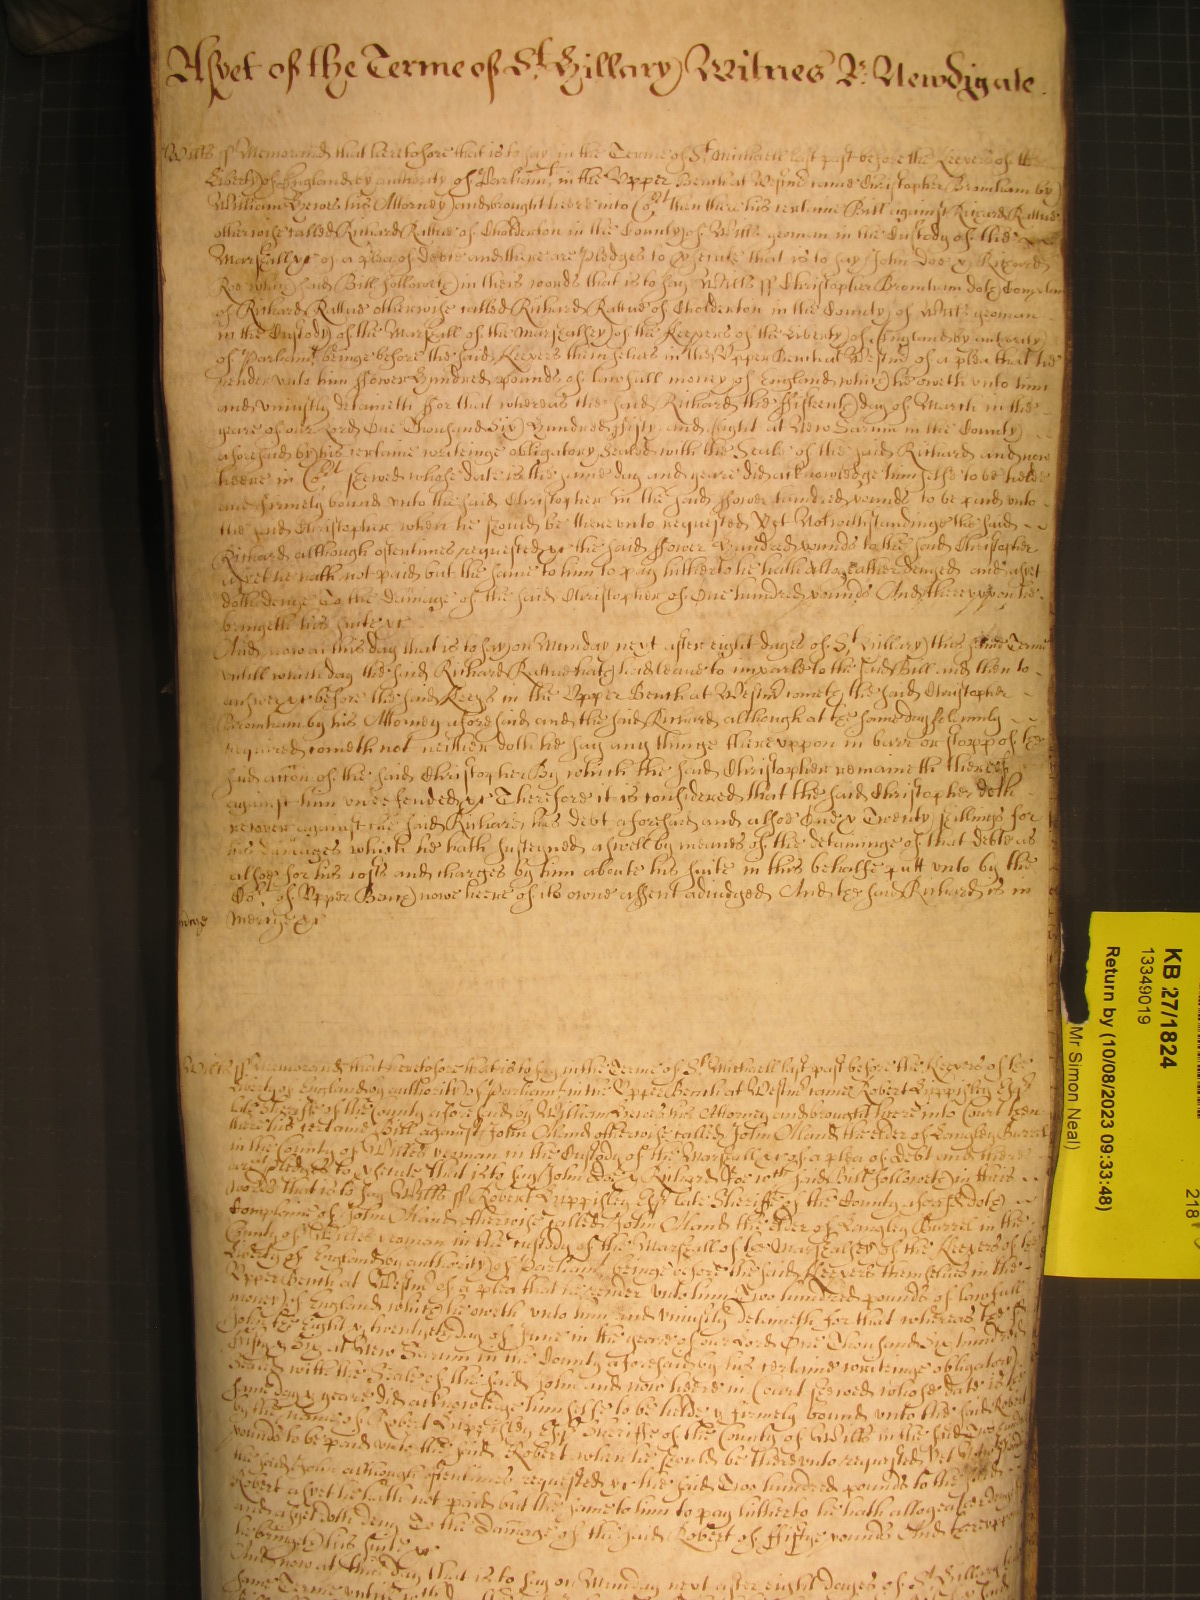 As yet of the Terme of St. Hillary Witnes R: Newdigate
Wilts ss Memorand that heretofore that is to say in the Terme of St Michaell last past before the Keepers of the
Liberty of England by authority of Parliamt in the Upper Bench at Westmr came Christopher Bromham by
William his Attorney and brought heere into Cort then there his certaine Bill against Richard Rattue
otherwise called Richard Rattue of Cholderton in the County of Wilts yeoman in the Custody of the
Marshall &c of a plea of debte and there are Pledges to prosecute that is to say John Doe & Richard
Roe which said Bill followeth in theis words that is to say Wilts ss Christopher Bromham doth Complaine
of Richard Rattue otherwise called Richard Rattue of Cholderton in the County of Wilts yeoman
in the Custody of the Marshall of the Marshalsey of the Keepers of the Liberty of England by autority
of Parliamt beinge before the said Keepers themselves in the Upper Bench at Westmr of a plea that he
render unto him ffower Hundred pounds of lawfull money of England which he oweth unto him
and uniustly detaineth ffor that whereas the said Richard the ffifteenth day of March in the
yeare of our Lord One Thousand Six Hundred ffifty and Eight at New Sarum in the County
aforesaid by his certaine writeinge obligatory Sealed with the Seale of the said Richard and now
heere in Cort shewed whose date is the same day and yeare did acknowledge himselfe to be helde
and firmely bound unto the said Christopher in the said ffower hundred pounds to be paid unto
the said Christopher when he should be thereunto requested Yet Notwithstandinge the said
Richard although oftentimes requested &c the said ffower Hundred pounds to the said Christopher
as yet he hath not paid but the same to him to pay hitherto he hath altogeather denyed and as yet
doth denye To the damage of the said Christopher of One hundred pounds And thereuppon he
bringeth his suite &c
And now at this day that is to say on Munday next after eight dayes of St Hillary this same Terme
untill which day the said Richard Rattue had leave to imparle to the said Bill and then to
answer &c before the said Keeps in the Upper Bench at Westmr cometh the said Christopher
Bromham by his Attorney aforesaid and the said Richard although at the same day solemnly
required cometh not neither doth he say any thinge thereuppon in barr or stopp of the
said accon of the said Christopher By which the said Christopher remaineth thereof
against him undefended &c Therefore it is considered that the said Christopher doth
recover against the said Richard his debt aforesaid and alsoe One & Twenty shillings for
his damages which he hath susteyned aswell by meanes of the detaininge of that debte as
alsoe for his costs and charges by him about his suite in this behalfe putt unto by the
Cort of Upper Bench nowe heere of its owne assent adiudged And the said Richard is in
mercye &c
KB 27/1824
13349019
Return by (10/08/2023 09:33:48)
Mr Simon Neal)
218
Wilts ss Memorand that heretofore that is to say in the Terme of St Michaell last past before the Keepers of the
Liberty of England by authority of Parliamt in the Upper Bench at Westmr came Robert Hippisley Esqr
late Sheriffe of the County aforesaid by William his Attorney and brought heere into Court then
there his certaine Bill against John Oland otherwise called John Oland the elder of Langley Burrell
in the County of Wiltes yeoman in the Custody of the Marshall &c of a plea of debt and there
are pledges to prosecute that is to say John Doe & Richard Roe wch said bill followeth in theis
words that is to say Wilts ss Robert Hippisley Esqr late Sheriffe of the County aforesd doth
Complaine of John Oland otherwise called John Oland the elder of Langley Burrell in the
County of Wiltes yeoman in the custody of the Marshall of the Marshalsey of the Keepers of the
Liberty of England by authority of Parliamt beinge before the said Keepers themselves in the
Upper Bench at Westmr of a plea that he render unto him Two hundred pounds of lawfull
money of England which he oweth unto him and uniustly detaineth for that whereas the sd
John the Eight & twentyeth day of June in the yeare of our Lord One Thousand Six hundred
ffifty & Six at New Sarum in the County aforesaid by his certaine writeinge obligatory
Sealed with the Seale of the said John and now heere in Court shewed whose date is the
same day & yeare did acknowledge himselfe to be helde & firmely bound unto the said Robert
by the name of Robert Hippisley Esqr Sheriffe of the County of Wilts in the said Two hundred
pounds to be paid unto the said Robert when he should be thereunto requested Yet Notwithstanding
the said John although oftentimes requested &c the said Two hundred pounds to the said
Robert as yet he hath not paid but the same to him to pay hitherto he hath altogeather denyed
and as yet doth deny To the damage of the said Robert of ffiftye pounds And thereuppon
he bringeth his suite &c
And now at this day that is to say on Munday next after eight dayes of St Hillary this
same Terme untill